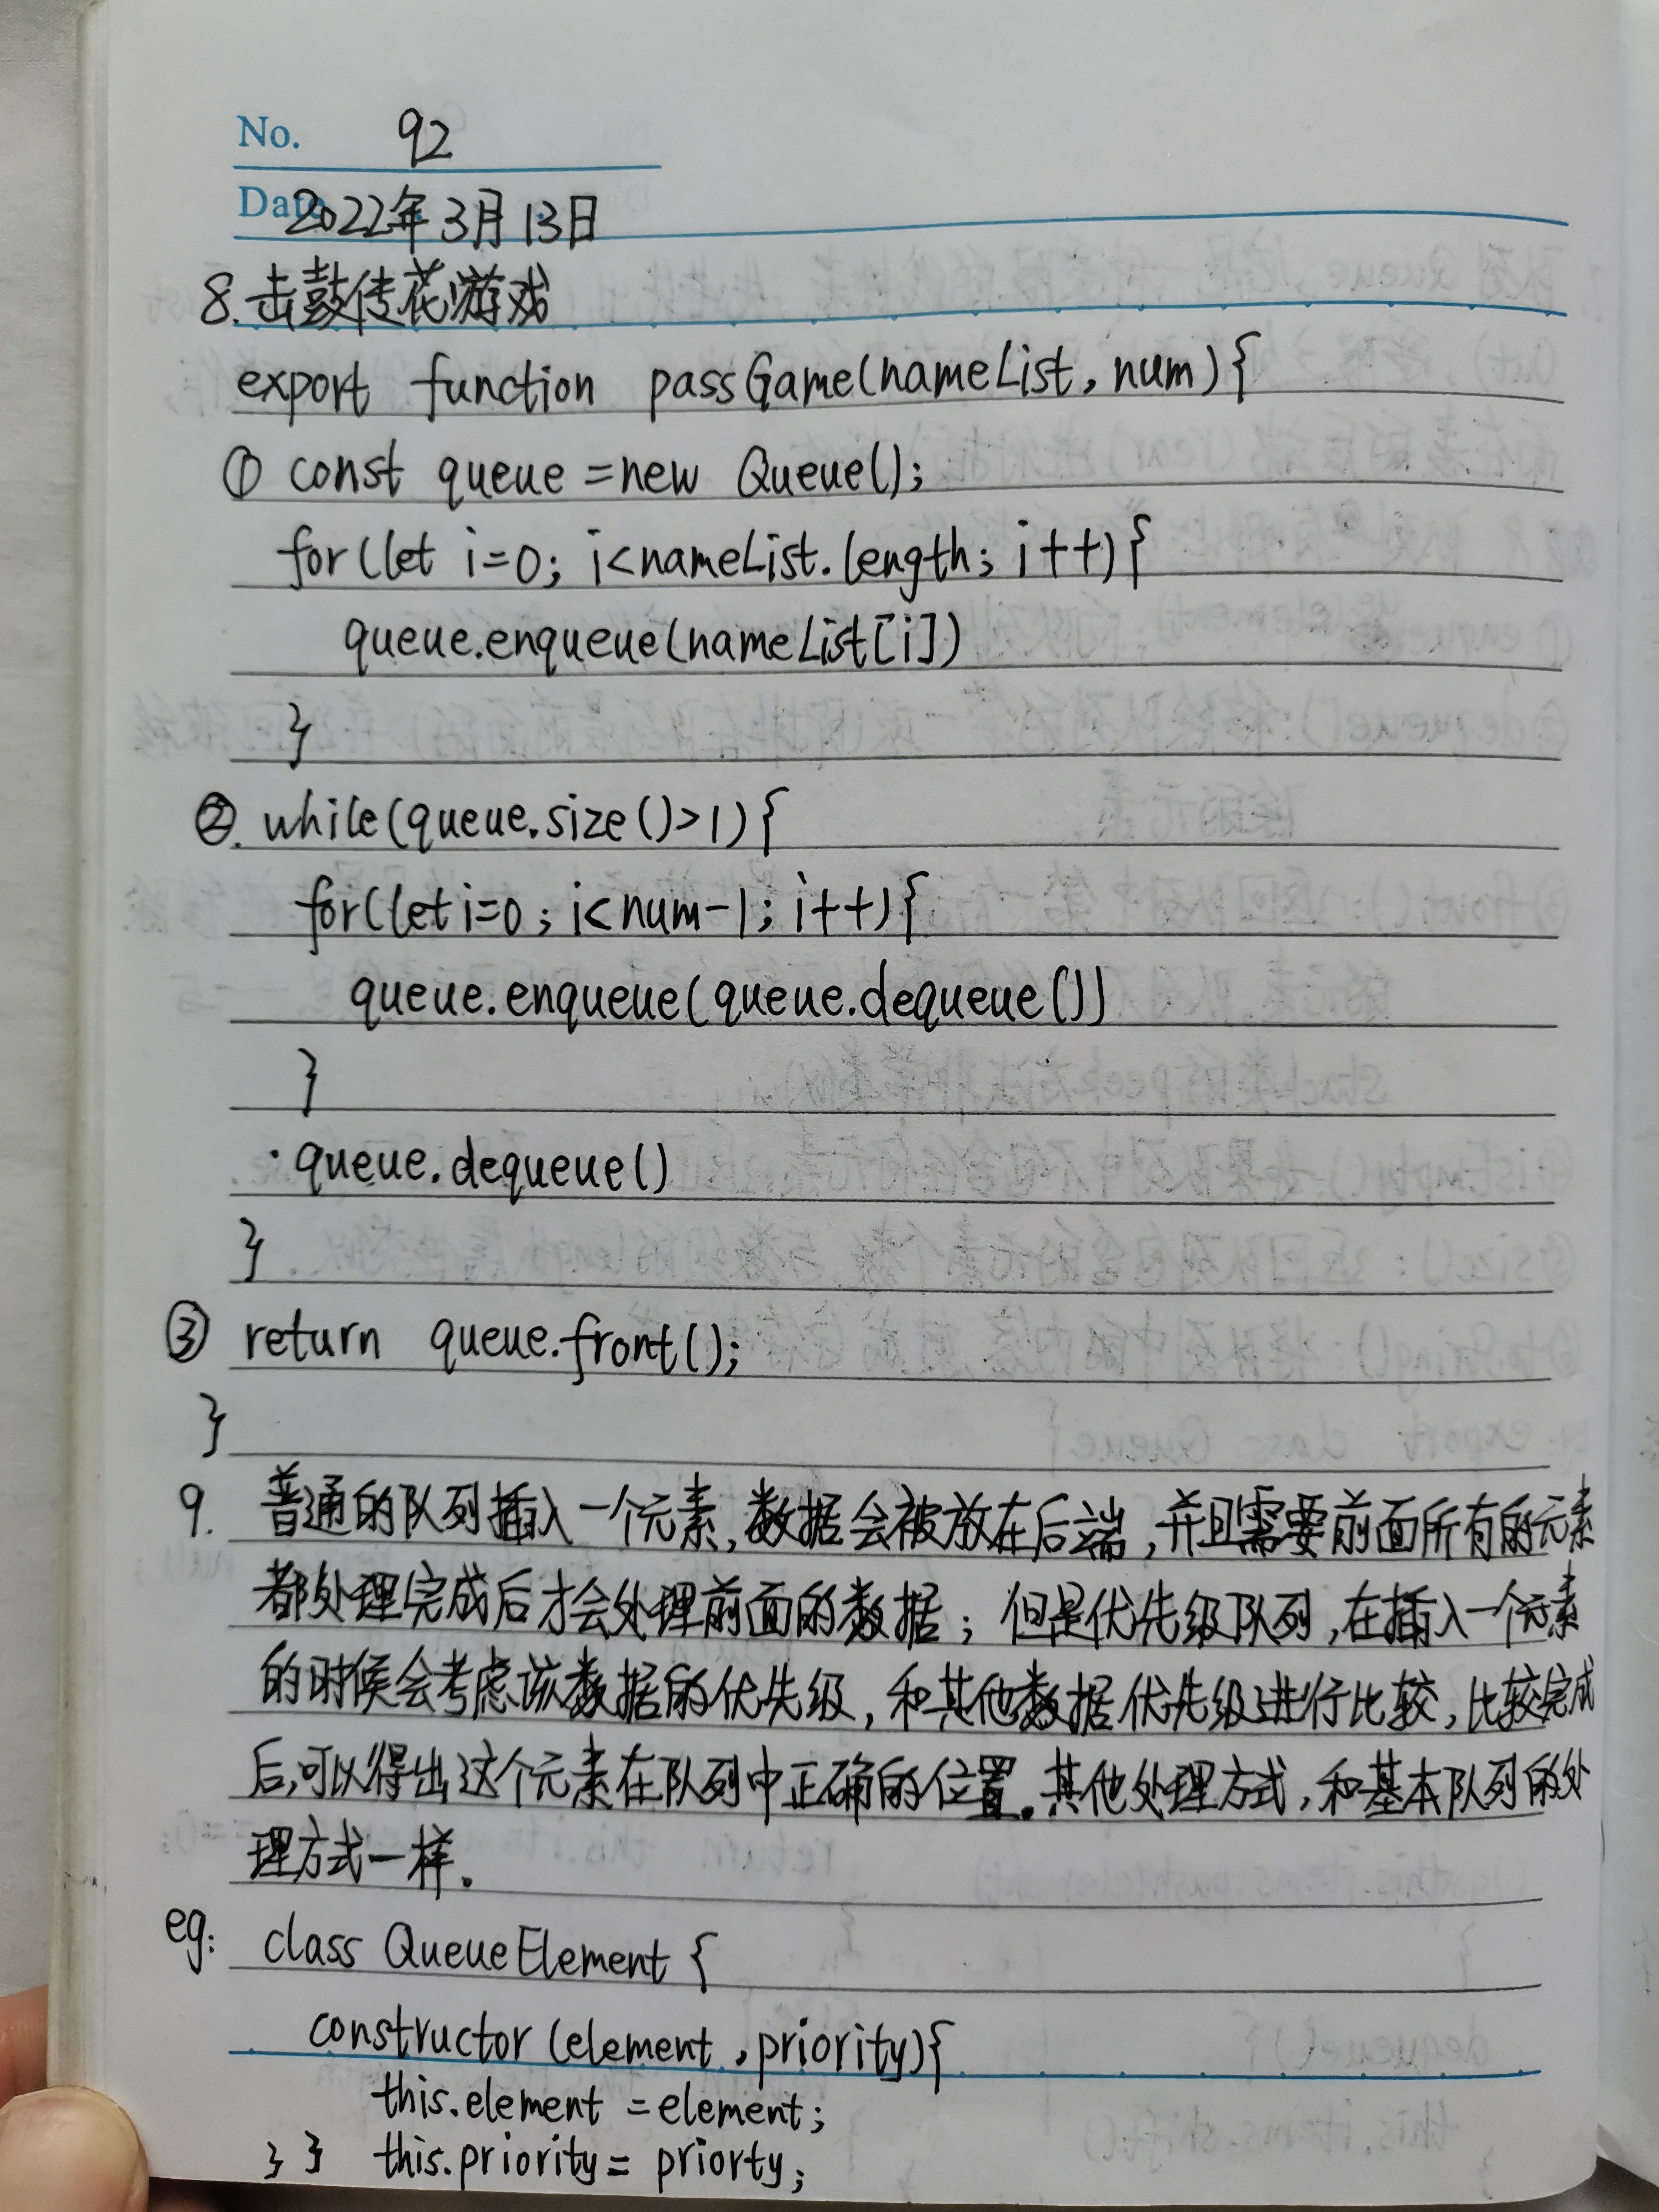 No. 92
Date 2022年3月13日
8.击鼓传花游戏
export function passGame(nameList, num){
① const queue = new Queue();
for(let i=0; i<nameList.length; i++){
queue.enqueue(nameList[i])
}
②. while(queue.size()>1){
for(let i=0; i<num-1; i++){
queue.enqueue(queue.dequeue())
}
·queue.dequeue()
}
③ return queue.front();
}
9. 普通的队列插入一个元素,数据会被放在后端,并且需要前面所有的元素
都处理完成后才会处理前面的数据;但是优先级队列,在插入一个元素
的时候会考虑该数据的优先级,和其他数据优先级进行比较,比较完成
后,可以得出这个元素在队列中正确的位置。其他处理方式,和基本队列的处
理方式一样。
eg: class QueueElement {
constructor(element,priority){
this.element = element;
} } this.priority = priorty;